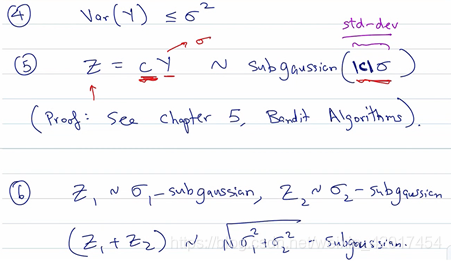 ④ Var(Y) ≤ σ²
std-dev
σ
⑤ Z = c Y ~ subgaussian(|c|σ)
(Proof: See Chapter 5, Bandit Algorithms).
⑥ Z₁ ~ σ₁-subgaussian, Z₂ ~ σ₂-subgaussian
(Z₁ + Z₂) ~ √(σ₁² + σ₂²) - subgaussian.